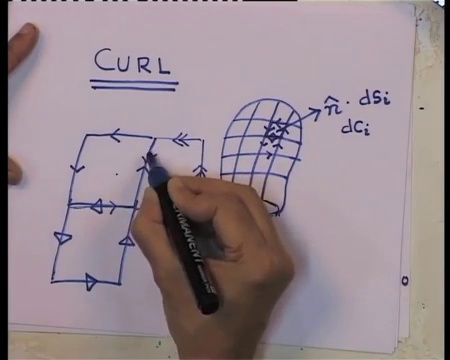 CURL
n̂ · dSi
dCi
PERMANENT